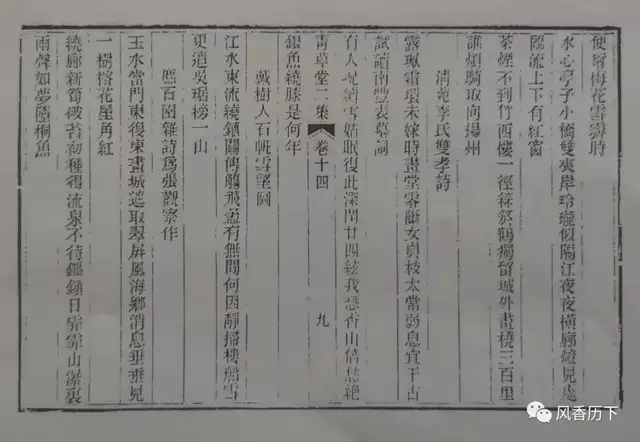 梅花雪霽時
水心亭子小橋雙夾岸玲瓏似隔江夜夜橫廊燈見處
臨流上下有紅窗
茶煙不到竹西樓一徑鶴獨留城外畫橈三百里
誰煩騎取向揚州
清苑李氏雙孝詩
露琢霜環未嫁時畫堂零斷女貞枝太常弱息宜千古
試讀南豐表墓詞
有人續雪姑眠復此深閨廿四絃我恐香山倍愁絕
青草堂二集 卷十四 九
銀魚繞膝是何年
戴樹人石帆雪望圖
江水東流繞鎮關傳觴飛盞有無間何因靜掃樓船雪
更造吳琚榜一山
百園雜詩為張觀察作
玉水當門東復東畫城選取翠屏風海鄉消息垂垂見
一樹榕花屋角紅
繞廊新筍破苔初種得流泉不待鋤鎮日霏霏山瀑裏
雨聲如夢隱桐魚
风香历下